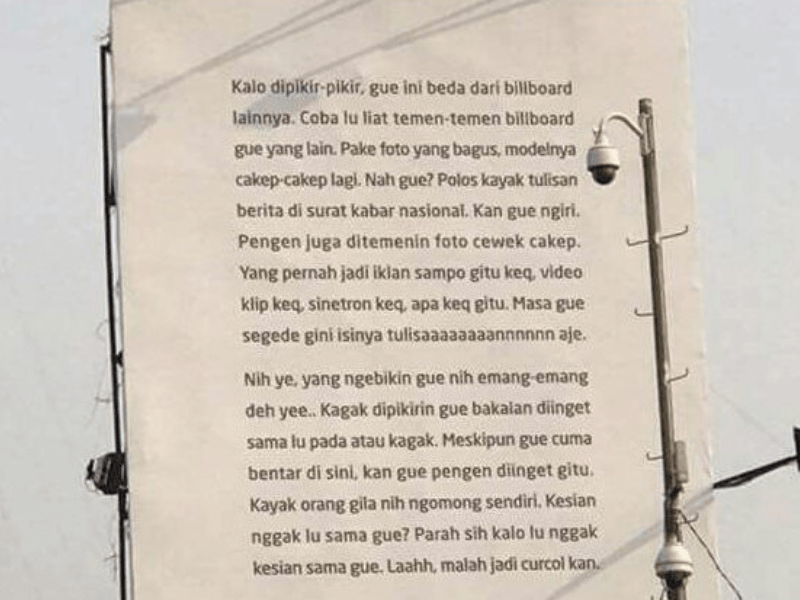 Kalo dipikir-pikir, gue ini beda dari billboard
lainnya. Coba lu liat temen-temen billboard
gue yang lain. Pake foto yang bagus, modelnya
cakep-cakep lagi. Nah gue? Polos kayak tulisan
berita di surat kabar nasional. Kan gue ngiri.
Pengen juga ditemenin foto cewek cakep.
Yang pernah jadi iklan sampo gitu keq, video
klip keq, sinetron keq, apa keq gitu. Masa gue
segede gini isinya tulisaaaaaaaannnnnn aje.
Nih ye, yang ngebikin gue nih emang-emang
deh yee.. Kagak dipikirin gue bakalan diinget
sama lu pada atau kagak. Meskipun gue cuma
bentar di sini, kan gue pengen diinget gitu.
Kayak orang gila nih ngomong sendiri. Kesian
nggak lu sama gue? Parah sih kalo lu nggak
kesian sama gue. Laahh, malah jadi curcol kan.